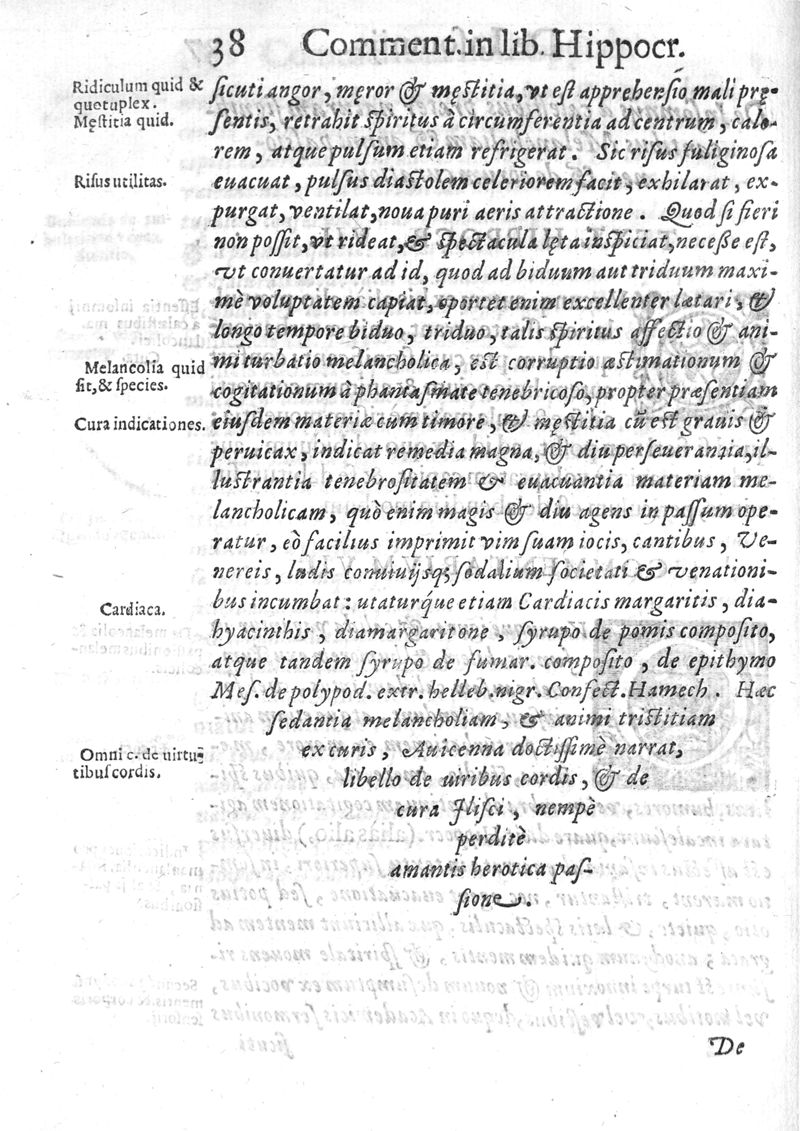 38 Comment. in lib. Hippocr.
Ridiculum quid &
quotuplex.
Męstitia quid.
sicuti angor, męror & męstitia, vt est apprehensio mali prę-
sentis, retrahit spiritus à circumferentia ad centrum, calo-
rem, atque pulsum etiam refrigerat. Sic risus fuliginosa
Risus utilitas.
euacuat, pulsus diastolem celeriorem facit, exhilarat, ex-
purgat, ventilat, noua puri aeris attractione. Quod si fieri
non possit, vt rideat, & spectacula lęta inspiciat, necesse est,
vt conuertatur ad id, quod ad biduum aut triduum maxi-
mè voluptatem capiat, oportet enim excellenter lætari, &
longo tempore biduo, triduo, talis spiritus affectio & ani-
Melancolia quid
sit, & species.
mi turbatio melancholica, est corruptio æstimationum &
cogitationum à phantasmate tenebricoso, propter præsentiam
Cura indicationes.
eiusdem materiæ cum timore, & męstitia cũ est grauis &
peruicax, indicat remedia magna, & diu perseuerantia, il-
lustrantia tenebrositatem & euacuantia materiam me-
lancholicam, quò enim magis & diu agens in passum ope-
ratur, eò facilius imprimit vim suam iocis, cantibus, Ve-
nereis, ludis conuiuijsq; sodalium societati & venationi-
bus incumbat: utaturq́ue etiam Cardiacis margaritis, dia-
Cardiaca.
hyacinthis, diamargaritone, syrupo de pomis composito,
atque tandem syrupo de fumar. composito, de epithymo
Mes. de polypod. extr. helleb. nigr. Confect. Hamech. Hæc
sedantia melancholiam, & animi tristitiam
Omni c. de uirtu-
tibus cordis.
ex curis, Auicenna doctissimè narrat,
libello de uiribus cordis, & de
cura Ilisci, nempè
perditè
amantis herotica pas-
sione.
De